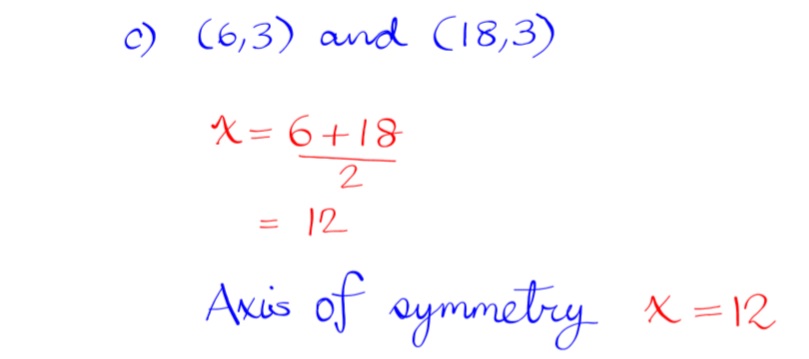 c) (6,3) and (18,3)
x = 6+18
2
= 12
Axis of symmetry x = 12